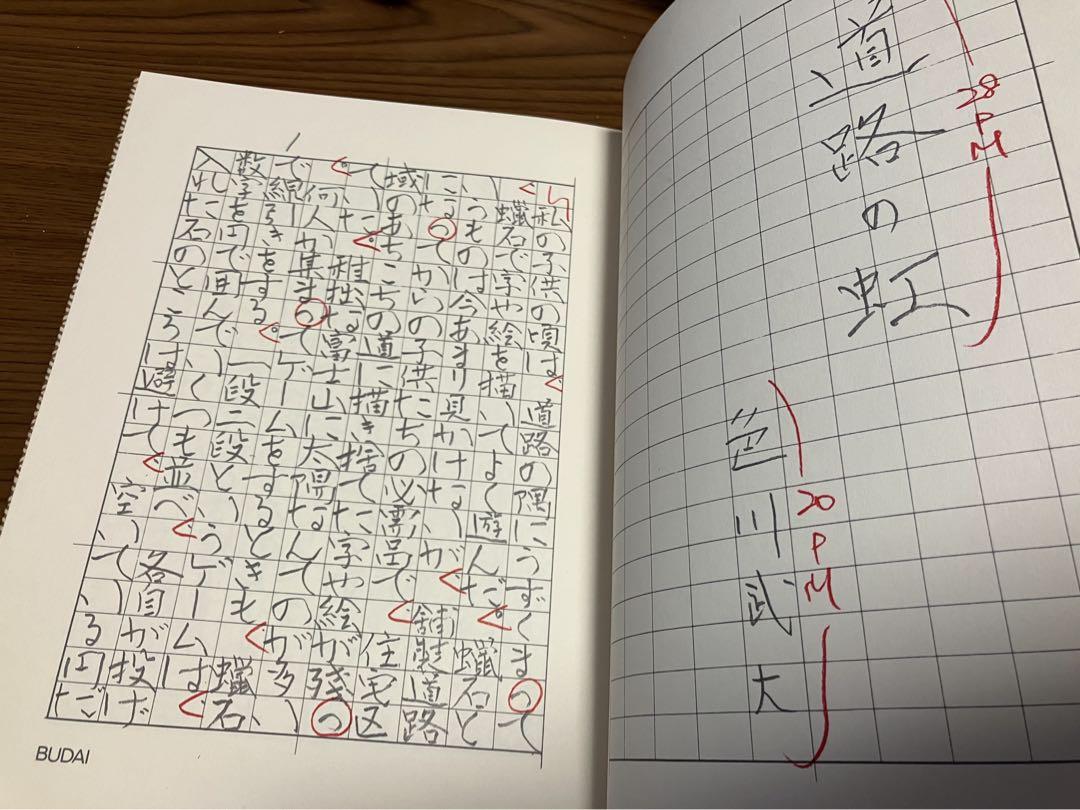 道路の虹
28P
M
色川武大
20P
M
私の子供の頃は、道路の隅にうずくまって
蠟石で字や絵を描いてよく遊んだ。蠟石と
いうものは今あまり見かけないが、舗装道路
になってからの子供たちの必需品で、住宅区
域のあちこちの道に描き捨てた字や絵が残っ
ていた。稚拙な富士山に太陽なんてのが多い。
何人か集まってゲームをするときも、蠟石
で線引きをする。一段二段というゲームは、
数字を円で囲んでいくつも並べ、各自が投げ
入れた石のところは避けて、空いている円だけ
BUDAI